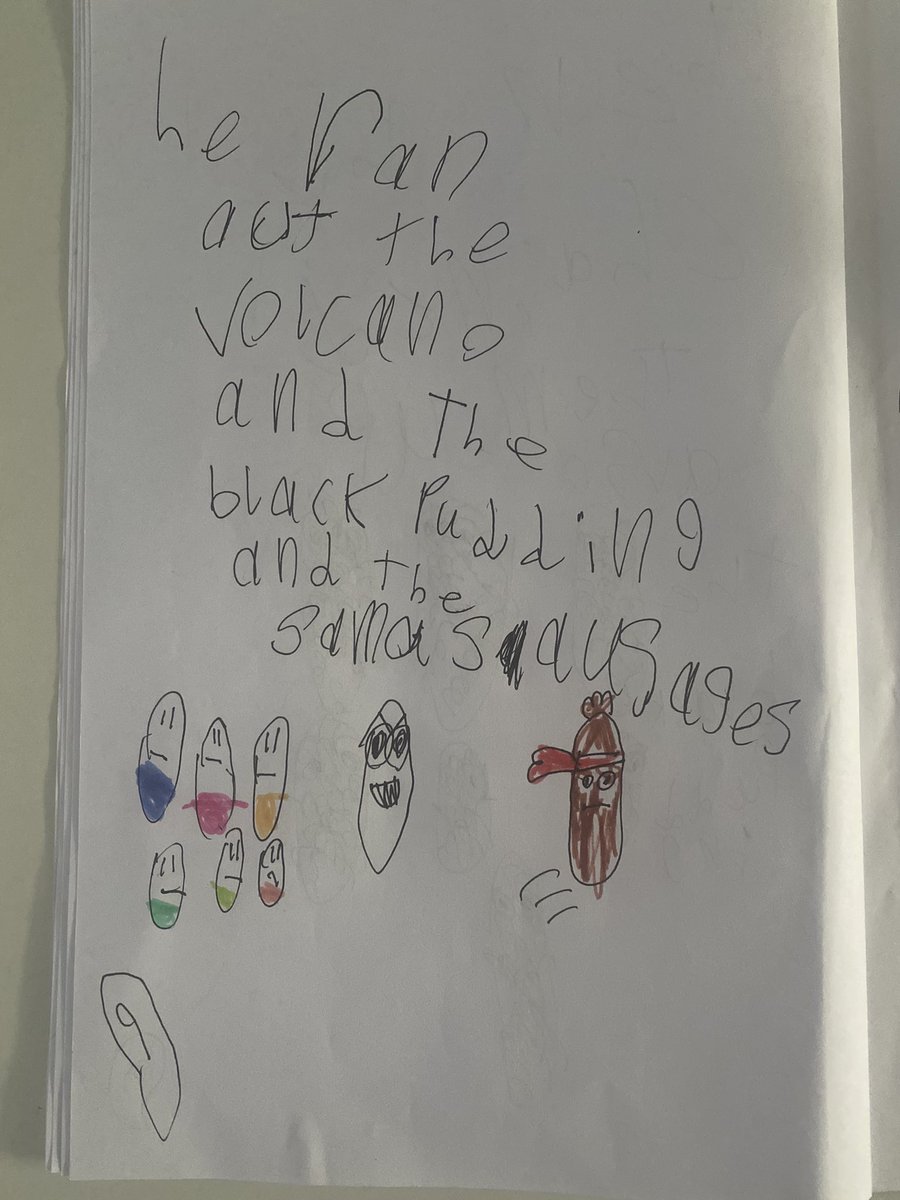 he ran
aut the
volcano
and the
black Pudding
and the
sama sausages
9